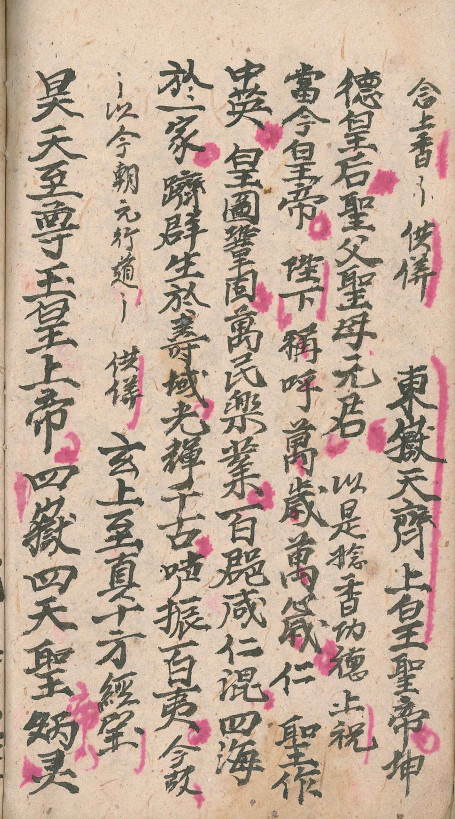 念上香〻 供养 東嶽天齊上皇聖帝坤
德皇后聖父聖母元君 以是捻香功德上祝
當今皇帝 陛下稱呼萬歲萬萬歲 仁聖作
中英 皇圖鞏固萬民樂業百郡咸仁混四海
於一家躋群生於壽域光輝千古 振百夷 今故
〻以今朝元行道〻 供养 玄上至真十方經寶
昊天至尊玉皇上帝四嶽四天聖帝炳灵